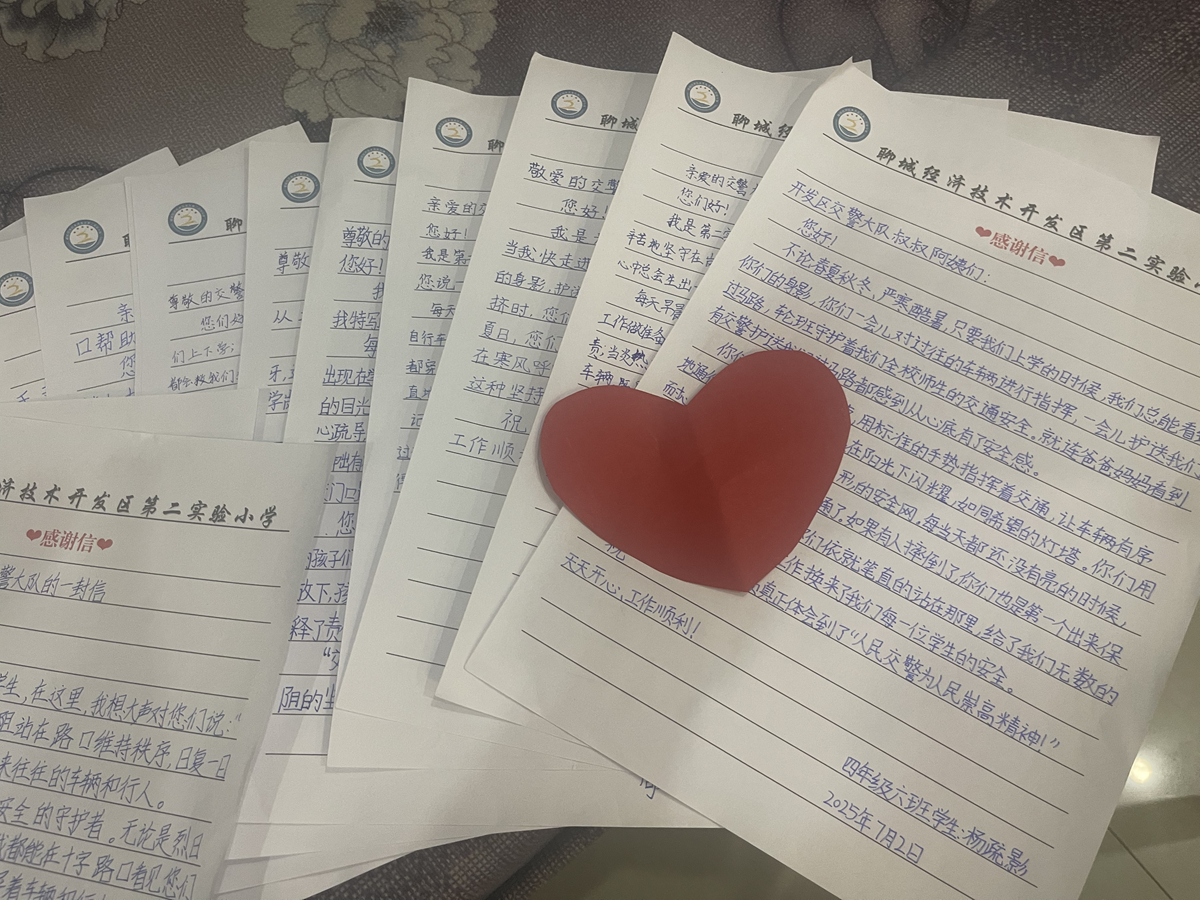 聊城经济技术开发区第二实验小
❤感谢信❤
开发区交警大队叔叔阿姨们：
您好！
不论春夏秋冬，严寒酷暑，只要我们上学的日时候，我们总能看
你们的身影，你们一会儿对过往的车辆进行指挥，一会儿护送我们
过马路，轮班守护着我们全校师生的交通安全。就连爸爸妈妈看到
有交警护送
马路都感到从心底有了安全感。
用标准的手势指挥着交通，让车车辆有序
在阳光下闪耀，如同希望的灯塔。你们用
形的安全网。每当天都还没有亮的时候，
了，如果有人摔倒了，你们也是第一个出来保
们依就笔直的站在那里，给了我们无数的
作换来了我们每一位学生的安全。
真正体会到了“人民交警为人民崇高精神！”
祝
天天开心，工作顺利！
四年级六班学生：杨疏影
2025年7月2日
聊城经
亲爱的交警
您们好！
我是第二
辛苦地坚守在
心中总会生出
每天早晨
工作做准备
责；当炎热
车辆
聊城
敬爱的交警
您好
我是
当我快走进
的身影，护
挤时，您们
夏日，您们
在寒风呼
这种坚持
祝
工作顺
聊
亲爱的交
您好！
我是第
您说一
每天
自行车
都穿
直
记
尊敬的
您好！
我
我特写
每
出现在学
的目光
心疏导
您
的孩子们
放下，孩
释了责
阴的
尊敬
从
牙，
聊
尊敬的交警
您们好
们上下学；
都会救我们
亲
口帮助
您
济技术开发区第二实验小学
❤感谢信❤
警大队的一封信
学生，在这里，我想大声对您们说：“
阻站在路口维持秩序，日复一日
来往往的车辆和行人。
安全的守护者。无论是烈日
我都能在十字路口看见您们
着车辆和行